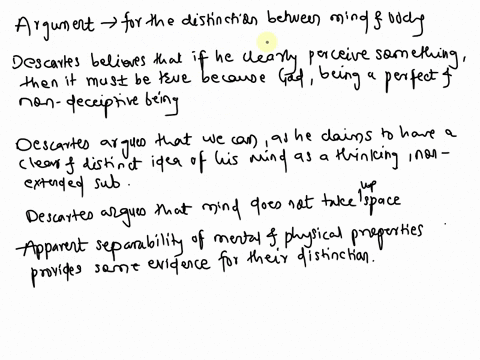 Argument → for the distinction between mind & body
Descartes believes that if he clearly perceive something,
then it must be true because God, being a perfect &
non-deceptive being
Descartes argues that we can, as he claims to have a
clear & distinct idea of his mind as a thinking, non-
extended sub.
Descartes argues that mind does not take up space
→ Apparent separability of mental & physical properties
provides some evidence for their distinction.